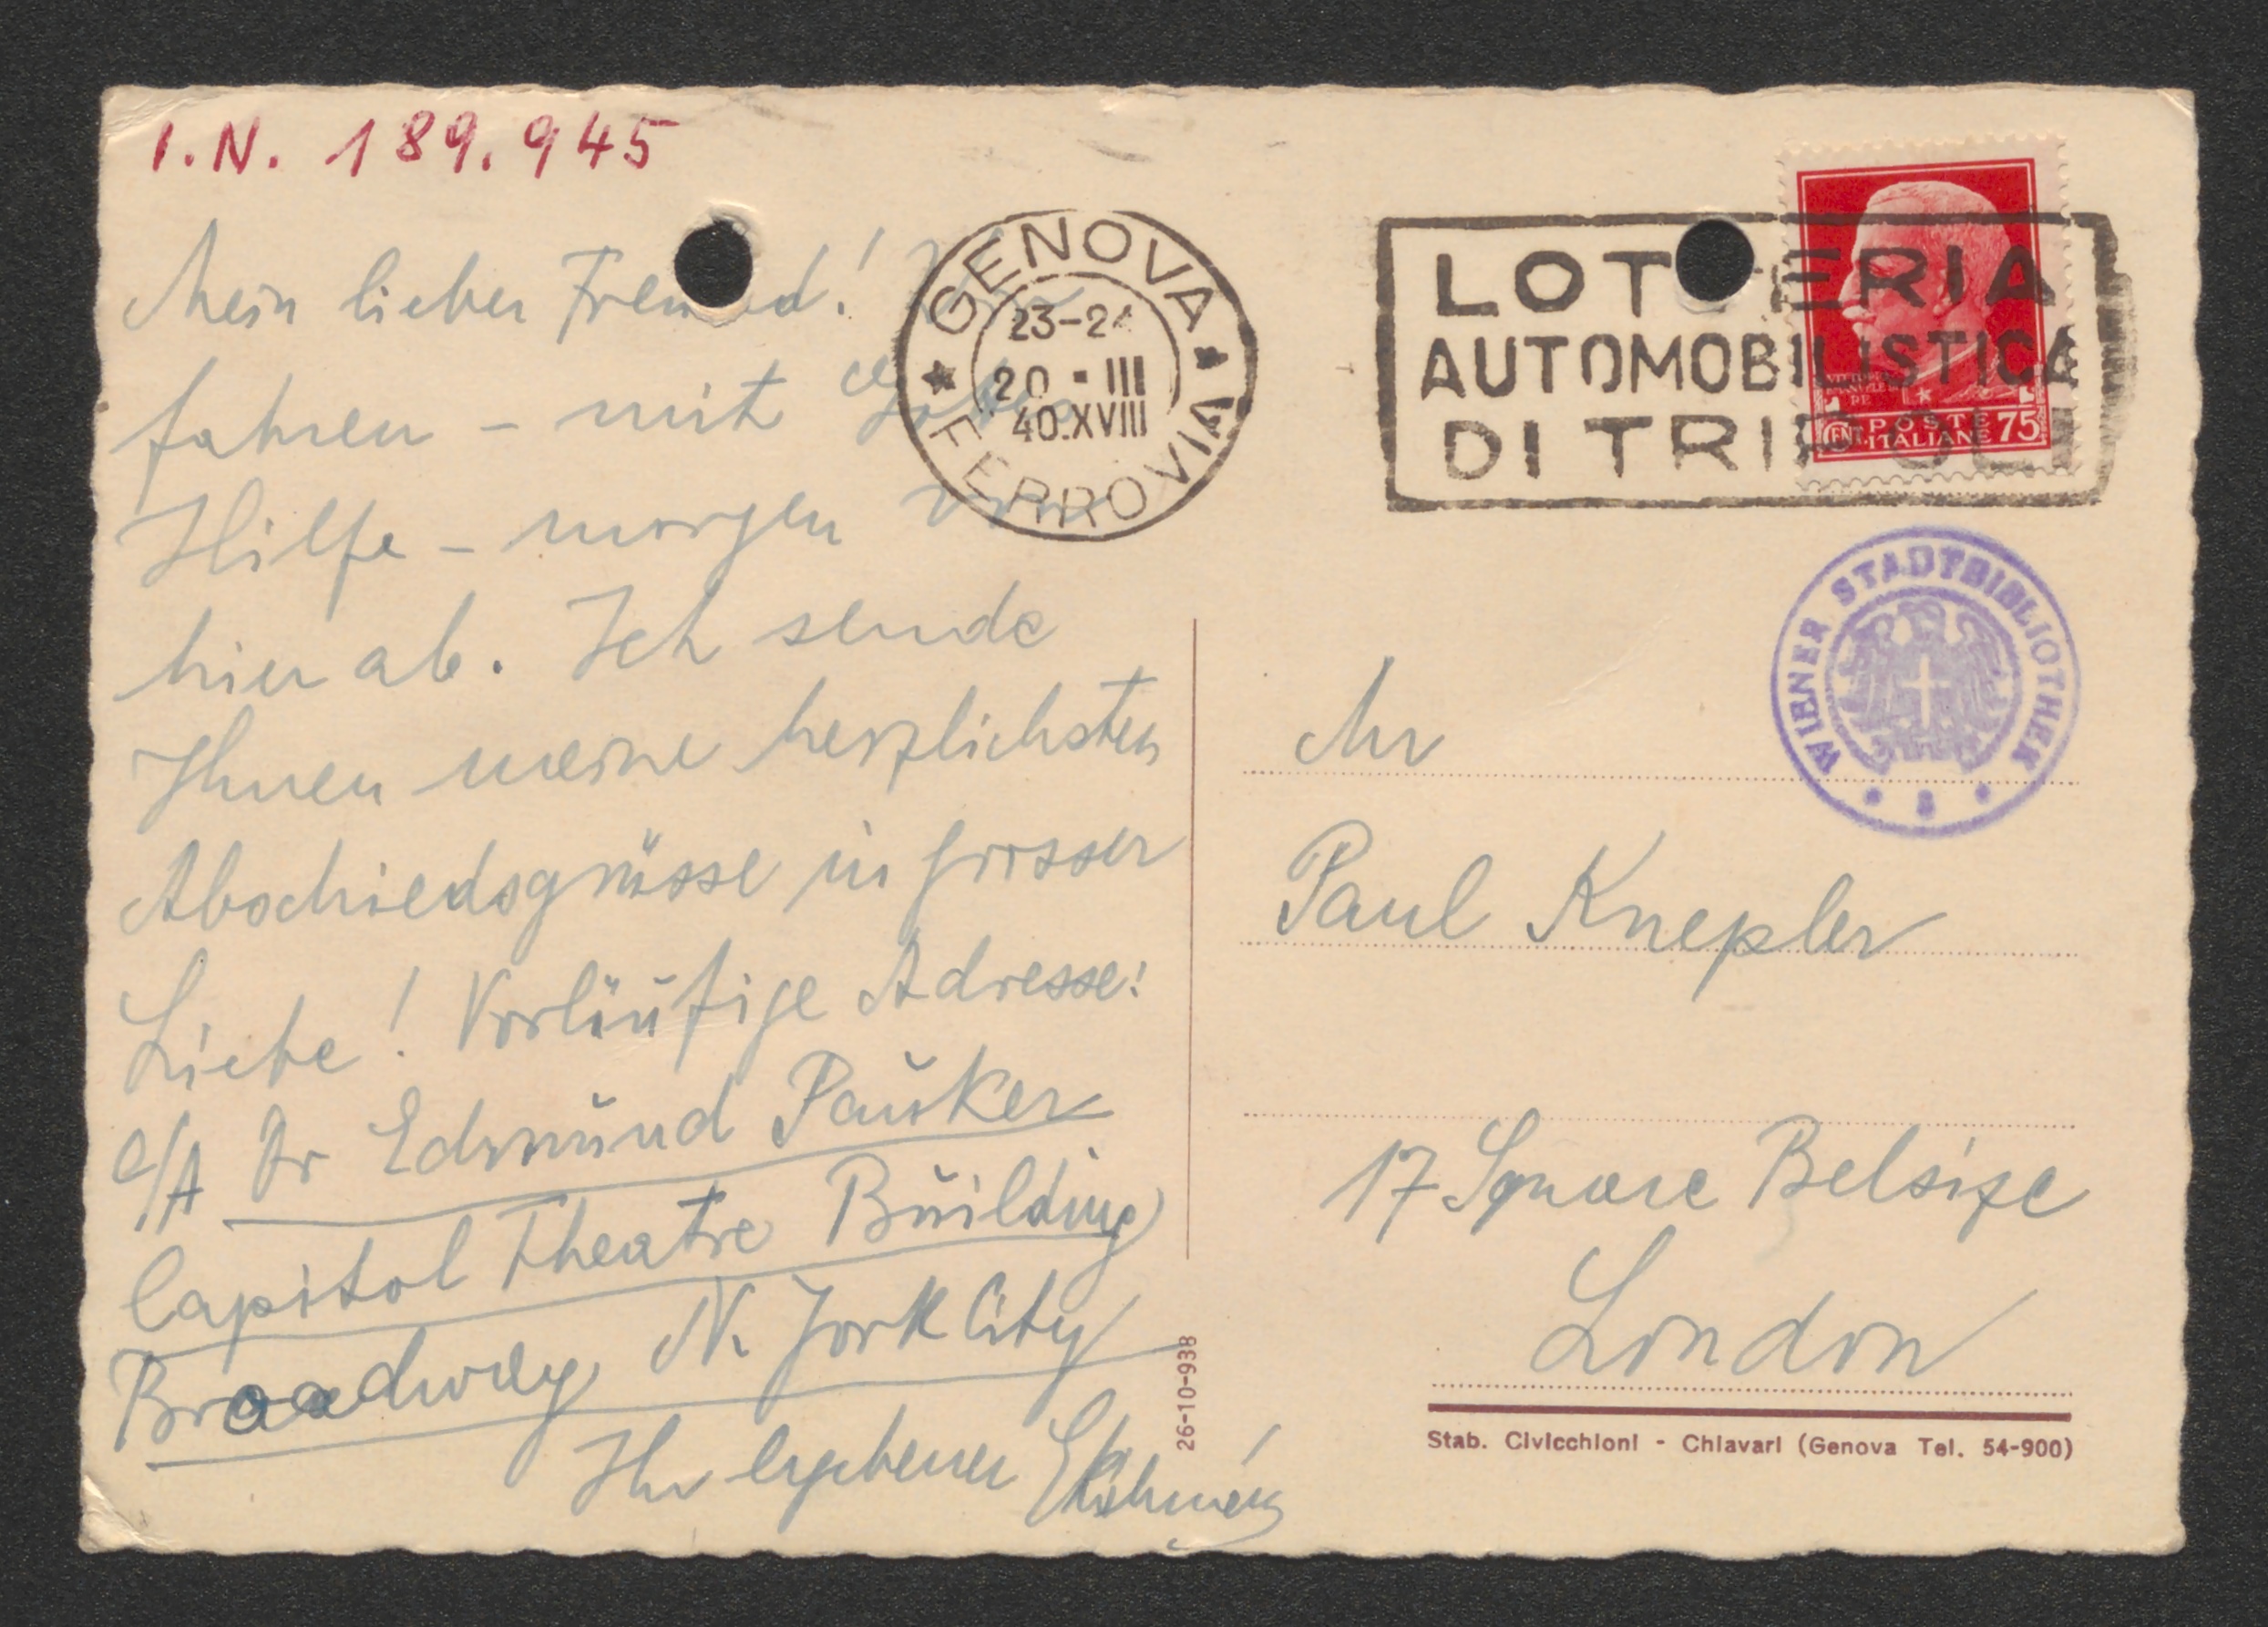 I.N. 189.945
Mein lieber Freund! Wir
fahren - mit Gottes
Hilfe - morgen von
hier ab. Ich sende
Ihnen meine herzlichsten
Abschiedsgrüsse in grosser
Liebe! Vorläufige Adresse:
c/A Dr Edmund Pauker
Capitol Theatre Building
Broadway N. York City
Ihr ergebener
GENOVA
23-24
20 · III
40.XVIII
FERROVIA
LOTTERIA
AUTOMOBILISTICA
DI TRIPOLI
POSTE
CENT. ITALIANE 75
WIENER STADTBIBLIOTHEK
Mr
Paul Knepler
17 Square Belsize
London
26-10-938
Stab. Civicchioni - Chiavari (Genova Tel. 54-900)